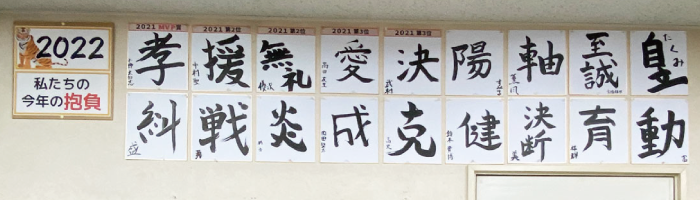 2022
私たちの
今年の抱負
2021 MVP賞
孝
2021 第2位
援
2021 第2位
無礼
2021 第3位
愛
2021 第3位
決
陽
軸
至誠
皇
たくみ
糾
戦
炎
成
克
健
決断
育
動